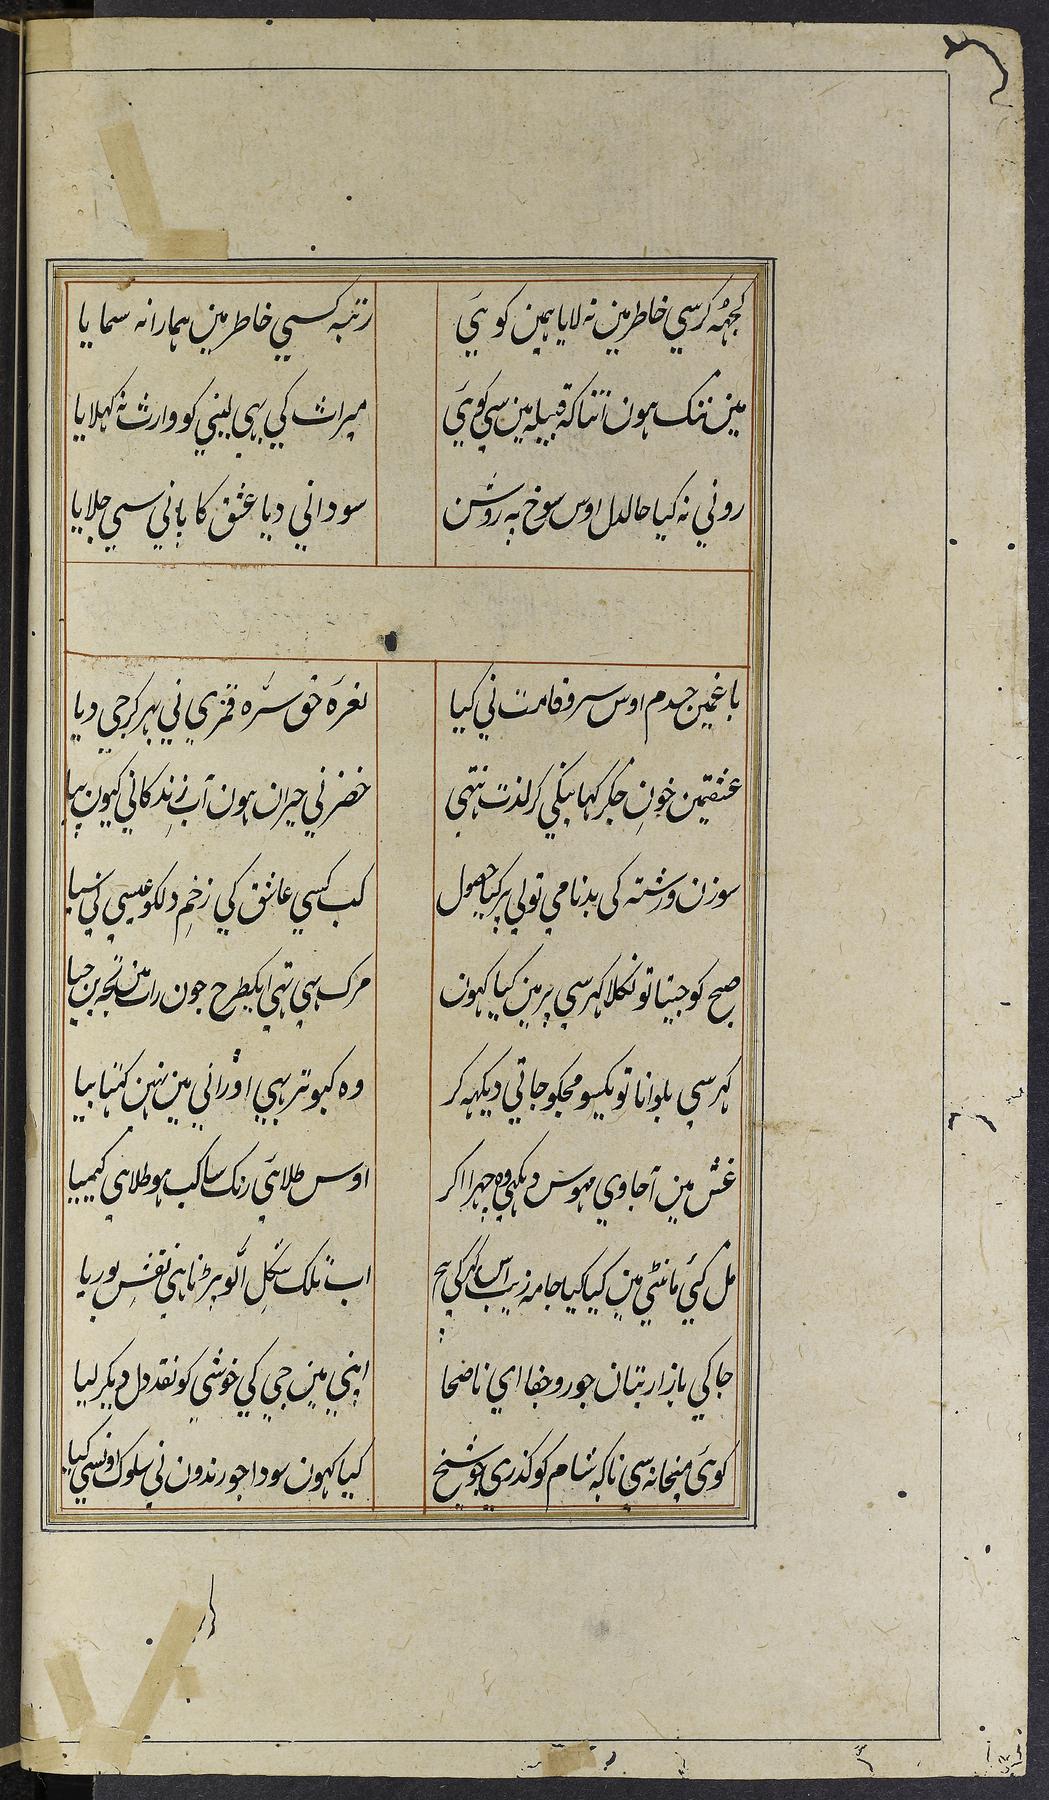 کجہہ کر سی خاطر مین نہ لایا ہمین کوئی رتبہ کسی خاطر مین ہمارا نہ سمایا
مین ننک ہون اتنا کہ قبیلہ مین سی کوئی میراث کی بہی لینی کو وارث نہ کہلایا
رونی نہ کیا حالدل اوس شوخ پہ روشن سودا نی دیا عشق کا پانی سی جلایا
باغمین جسدم اوس سروقامت نی کیا نعرہ حق سرہ قمری نی بہر کر جی دیا
عشقمین خون جکر کہانیکی کر لذت نتہی خضر نی حیران ہون آب زندکانی کیون پیا
سوزن و رشتہ کی بدنامی تو لی پر کیا حصول کب کسی عاشق کی زخم دلکو عیسی نی سیا
صبح کو جیتا تو نکلا کہر سی پر مین کیا کہون مرک بہی تہی ایکطرح جون رات مین تجہ بن جیا
کہر سی بلوانا تو یکسو مجکو جاتی دیکہہ کر وہ کبوتر بہی اورانی مین نہین کہتا بیا
غش مین آجاوی مہوس دیکہی وہ چہرا اکر اوس طلائی رنک سا کب ہو طلاہی کیمیا
مل کئی مانٹی مین کیا کیا جامہ زیب اس کہر کی بیچ اب تلک شکل الو پڑنا ہی نقش بوریا
جا کی بازار بتان جور و جفا ای ناصحا اپنی مین جی کی خوشی کو نقد دل دیکر لیا
کوئی میخانہ سی ناکہ شام کو کذری جو شیخ کیا کہون سودا جو رندون نی سلوک اونسی کیا